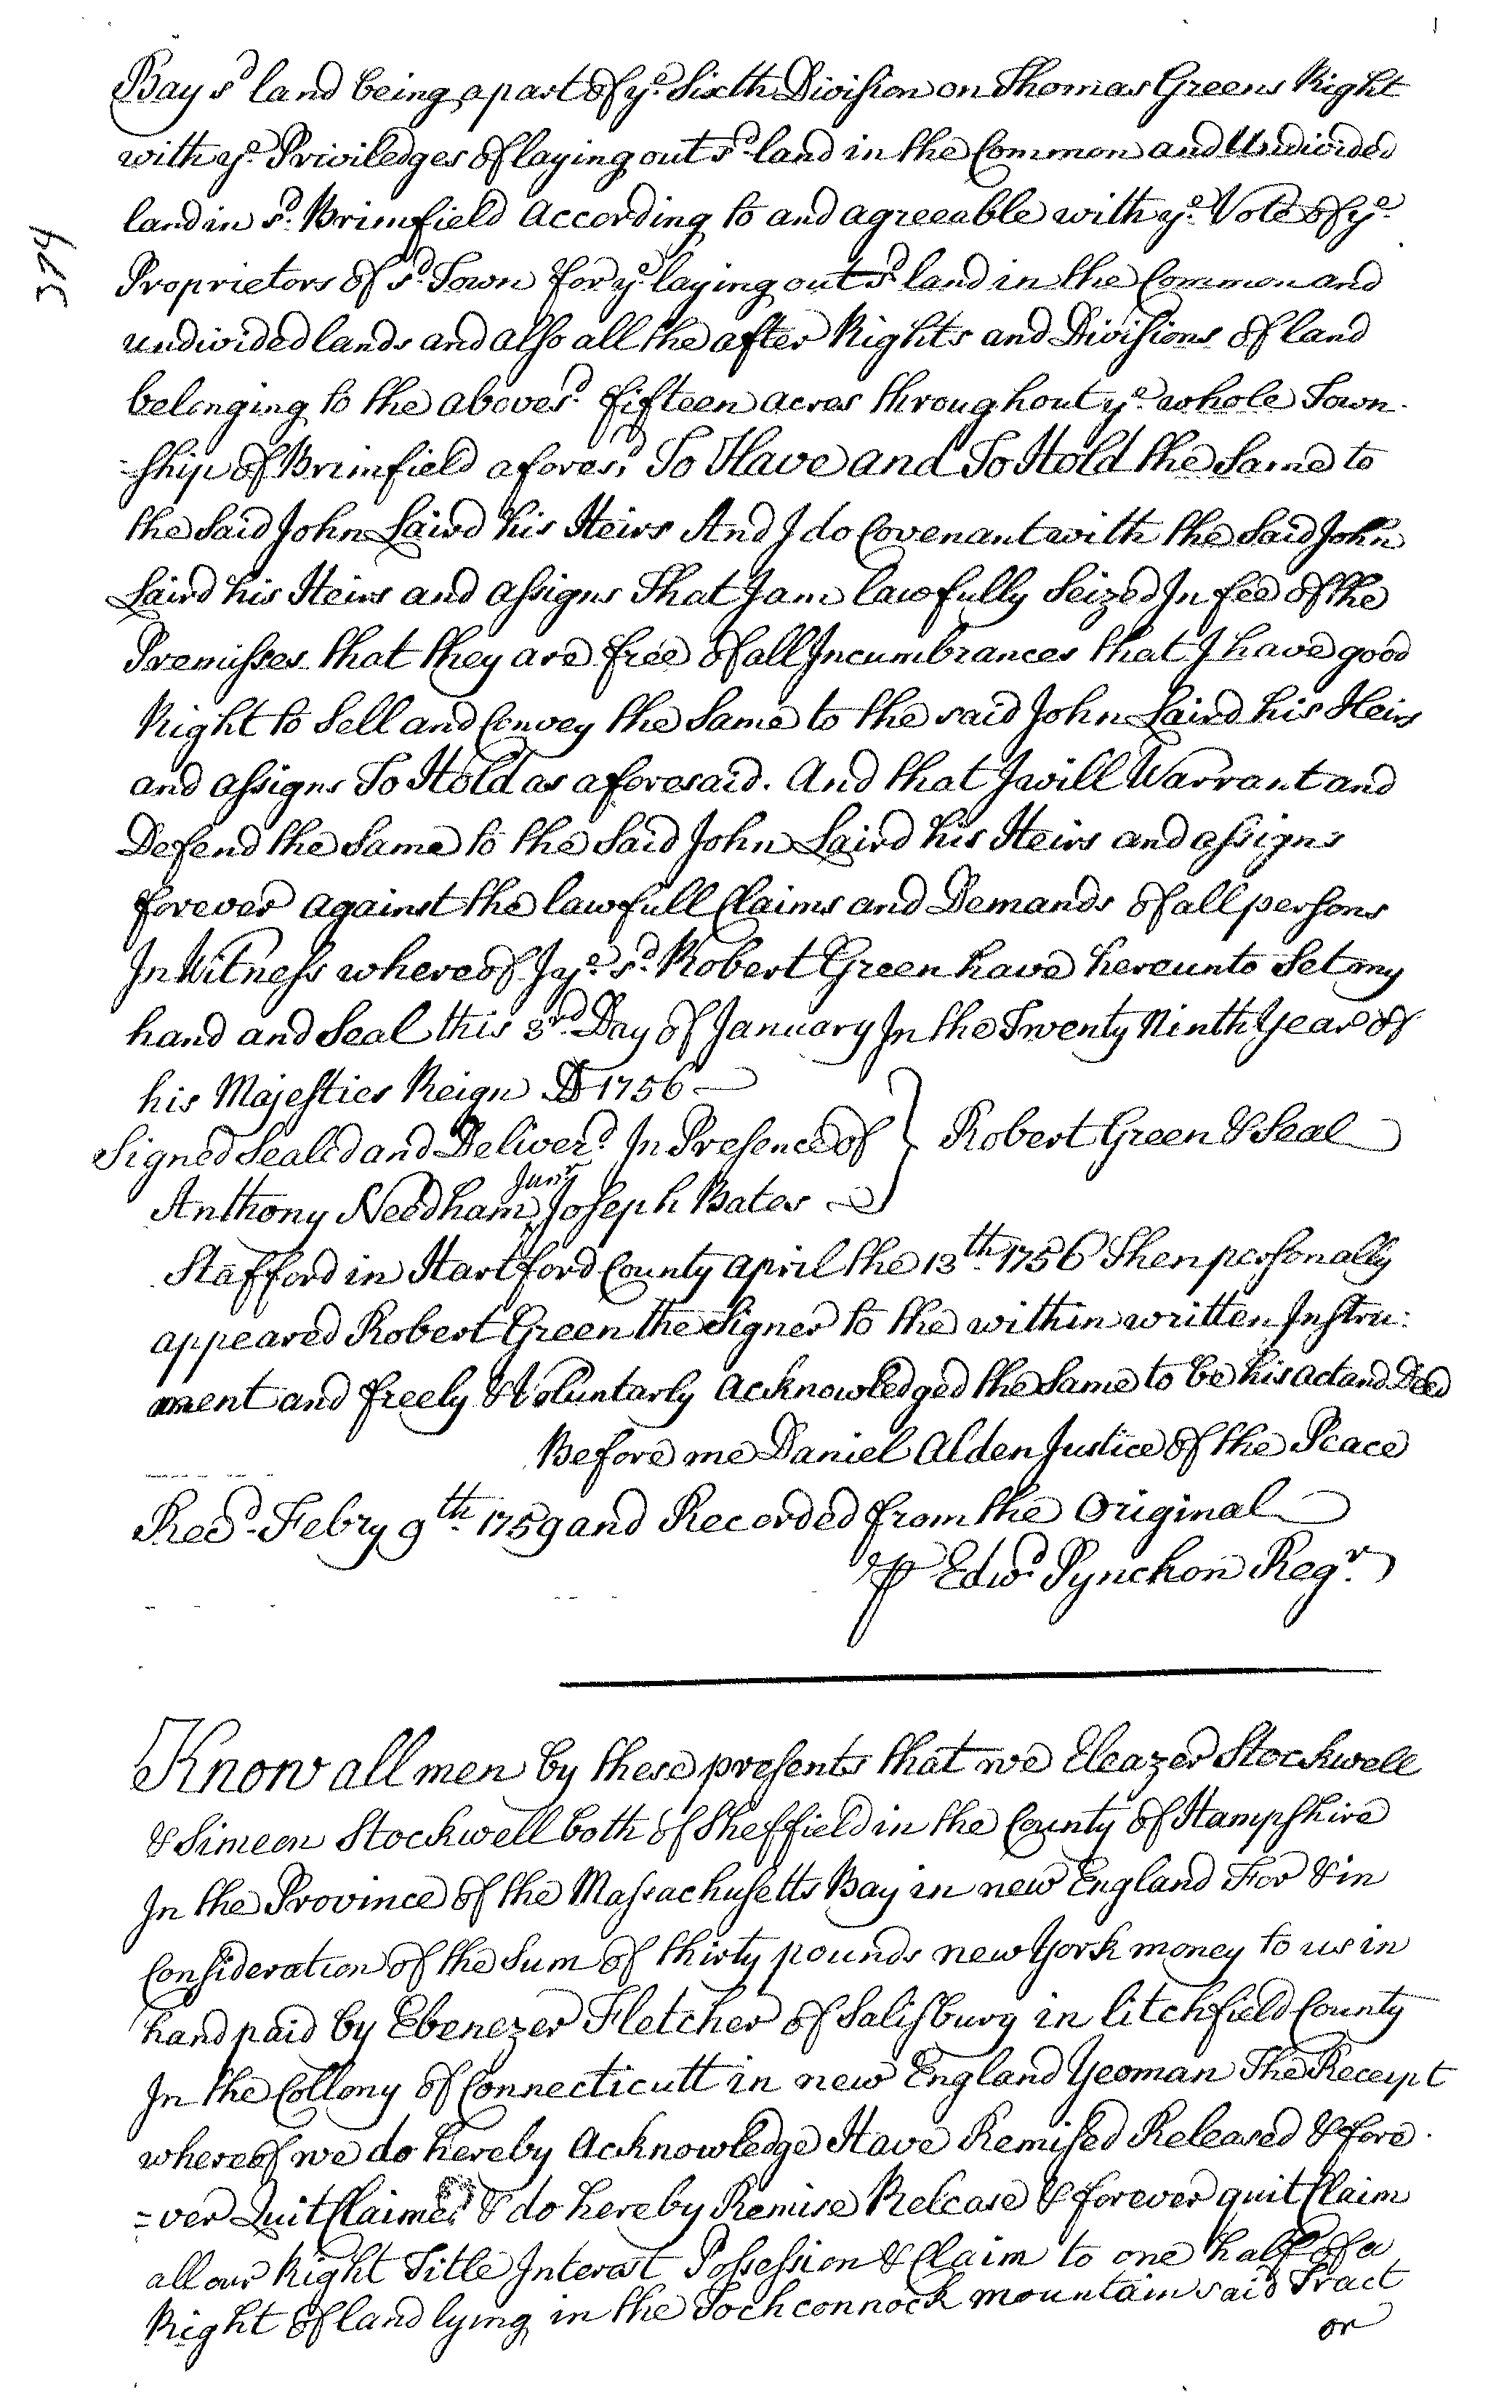 374
Bay sd land being a part of ye Sixth Division on Thomas Greens Right
with ye Priviledges of laying out sd land in the Common and Undivided
land in sd Brimfield According to and agreeable with ye Vote of ye
Proprietors of sd Town for ye laying out sd land in the Common and
undivided lands and also all the after Rights and Divisions of land
belonging to the aboves.d fifteen acres throughout ye whole Town
-ship of Brimfield afores.d To Have and To Hold the Same to
the Said John Laird his Heirs And I do Covenant with the Said John
Laird his Heirs and assigns That I am lawfully Seized In fee of the
Premisses that they are free of all Incumbrances that I have good
Right to Sell and Convey the Same to the said John Laird his Heirs
and assigns To Hold as aforesaid. And that I will Warrant and
Defend the Same to the Said John Laird his Heirs and assigns
forever against the lawfull Claims and Demands of all persons
In Witness whereof I ye sd Robert Green have hereunto Set my
hand and Seal this 3rd Day of January In the Twenty Ninth Year of
his Majesties Reign AD 1756
Signed Sealed and Deliver.d In Presence of } Robert Green & Seal
Anthony Needham Junr Joseph Bates
Stafford in Hartford County april the 13th 1756 Then personally
appeared Robert Green the Signer to the within written Instru:
ment and freely & Voluntarly Acknowledged the Same to be his act and Deed
Before me Daniel Alden Justice of the Peace
Recd Febry 9th 1759 and Recorded from the Original
P Edwd Pynchon Regr
Know all men by these presents that we Eleazer Stockwell
& Simeon Stockwell both of Sheffield in the County of Hampshire
In the Province of the Massachusetts Bay in new England For & in
Consideration of the Sum of thirty pounds new York money to us in
hand paid by Ebenezer Fletcher of Salisburg in litchfield County
In the Collony of Connecticutt in new England Yeoman The Receipt
whereof we do hereby Acknowledge Have Remised Released & fore
=ver Quit Claimed & do hereby Remise Release & forever quit Claim
all our Right Title Interest Possession & Claim to one half of a
Right of land lying in the Tochconnock mountain said Tract
or